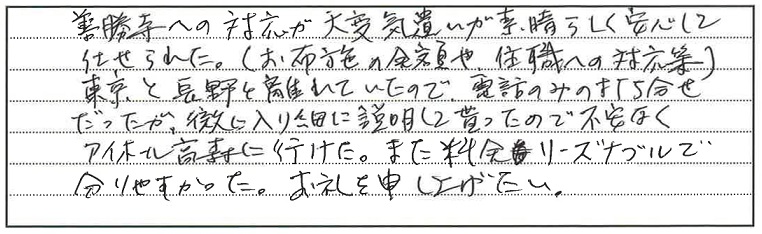 善勝寺への対応が大変気遣いが素晴らしく安心して
任せられた。(お布施の金額や、住職への対応等)
東京と長野と離れていたので、電話のみの打ち合せ
だったが、微に入り細に説明して貰ったので不安なく
アイホール高森に行けた。また料金もリーズナブルで
分りやすかった。お礼を申し上げたい。